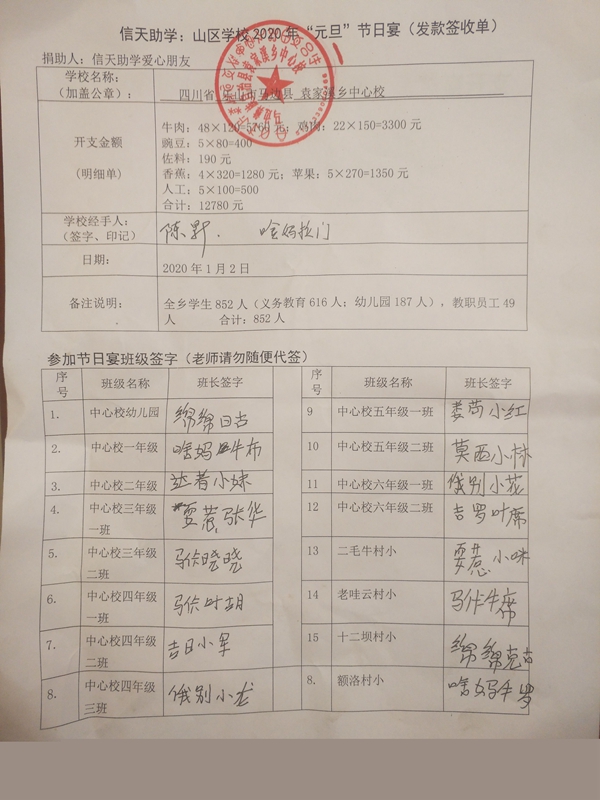 信天助学：山区学校2020年“元旦”节日宴（发款签收单）
捐助人：信天助学爱心朋友
学校名称：
（加盖公章）：
四川省 乐山市马边县 袁家溪乡中心校
开支金额
(明细单)
牛肉：48×120=5760元；鸡肉：22×150=3300元
豌豆：5×80=400
佐料：190元
香蕉：4×320=1280元；苹果：5×270=1350元
人工：5×100=500
合计：12780元
学校经手人：
（签字、印记）
日期：
2020年1月2日
备注说明：
全乡学生852人（义务教育616人；幼儿园187人），教职员工49
人 合计：852人
参加节日宴班级签字（老师请勿随便代签）
序号 班级名称 班长签字
1. 中心校幼儿园 绵绵日古
2. 中心校一年级 牛布
3. 中心校二年级 达者小妹
4. 中心校三年级一班 张华
5. 中心校三年级二班 晓晓
6. 中心校四年级一班 叶胡
7. 中心校四年级二班 吉日小军
8. 中心校四年级三班 俄别小龙
序号 班级名称 班长签字
9 中心校五年级一班 小红
10 中心校五年级二班 莫西小林
11 中心校六年级一班 俄别小花
12 中心校六年级二班 吉罗叶席
13 二毛牛村小 小咪
14 老哇云村小 牛席
15 十二坝村小 绵绵克古
8. 额洛村小 牛罗